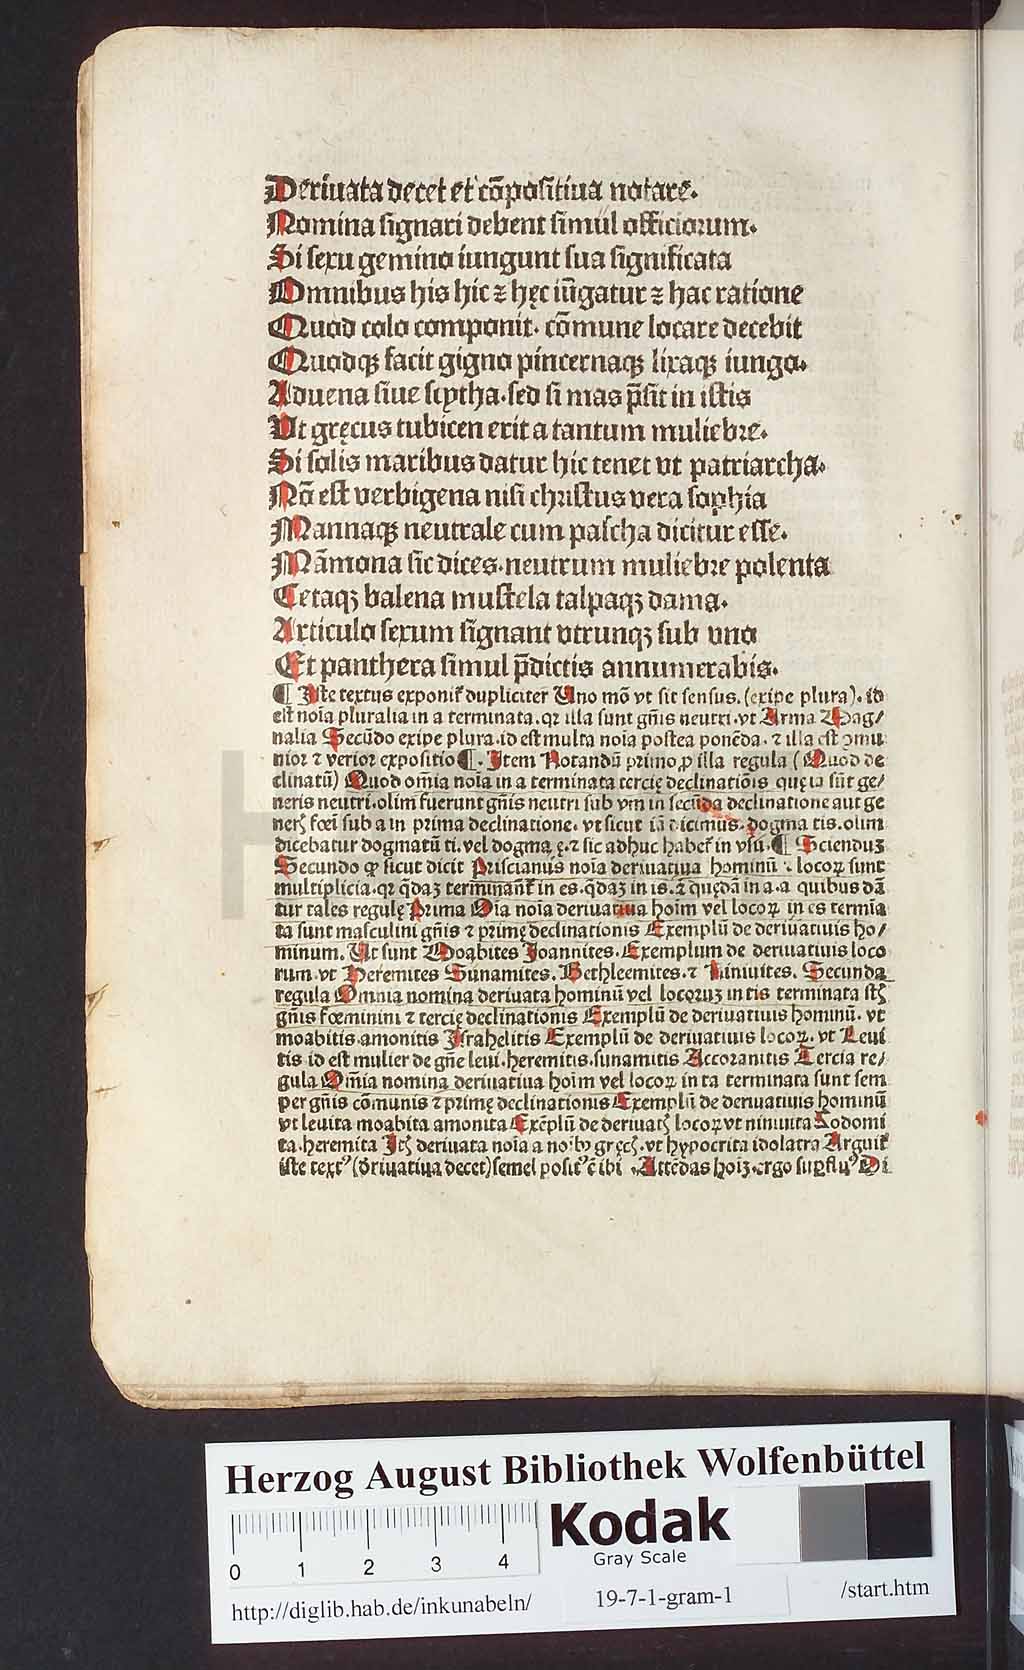 Deriuata decet et cōpositiua notare.
Nomina signari debent simul officiorum.
Si sexu gemino iungunt sua significata
Omnibus his hic ⁊ hęc iūgatur ⁊ hac ratione
Quod colo componit. cōmune locare decebit
Quodqꝫ facit gigno pincernaqꝫ lixaqꝫ iungo.
Aduena siue scytha.sed si mas p̄sit in istis
Ut gręcus tubicen erit a tantum muliebre.
Si solis maribus datur hic tenet vt patriarcha.
Nō est verbigena nisi christus vera sophia
Mannaqꝫ neutrale cum pascha dicitur esse.
Māmona sic dices.neutrum muliebre polenta
Cetaqꝫ balena mustela talpaqꝫ dama.
Articulo sexum signant vtrunqꝫ sub vno
Et panthera simul p̄dictis annumerabis.
¶ Iste textus exponit᷑ dupliciter Uno mō vt sit sensus. (exipe plura). id
est noīa pluralia in a terminata. qꝛ illa sunt gn̄is neutri.vt Arma Mag/
nalia Secūdo exipe plura.id est multa noīa postea ponēda. ⁊ illa est ꝯmu
nior ⁊ verior expositio ¶. Item Notandū primo ꝓ illa regula (Quod de
clinatū) Quod om̄ia noīa in a terminata tercię declinatiōis quęīa sūt ge/
neris neutri.olim fuerunt gn̄is neutri sub vm in secūda declinatione aut ge
neꝝ fœī sub a in prima declinatione. vt sicut iā dicimus. dogma tis.olim
dicebatur dogmatū ti. vel dogma ę.⁊ sic adhuc habet᷑ in vsū.¶ Sciendūꝫ
Secundo ꝙ sicut dicit Priscianus noīa deriuatiua hominū ⁊ locoꝝ sunt
multiplicia.qꝛ q̄daꝫ terminant᷑ in es.q̄daꝫ in is.⁊ quędā in a.a quibus dā
tur tales regulę Prima Oīa noīa deriuatiua hoīm vel locoꝝ in es termīa
ta sunt masculini gn̄is ⁊ primę declinationis Exemplū de deriuatiuis ho/
minum. Ut sunt Moabites Joannites. Exemplum de deriuatiuis loco
rum.vt Heremites Sunamites. Bethleemites.⁊ Niniuites. Secunda
regula Omnia nomina deriuata hominū vel locoruꝫ in tis terminata sūt
gn̄is fœminini ⁊ tercię declinationis Exemplū de deriuatiuis hominū. vt
moabitis.amonitis Israhelitis Exemplū de deriuatiuis locoꝝ. vt Leui
tis id est mulier de gn̄e leui.heremitis.sunamitis Accoranitis Tercia re/
gula Om̄ia nomina deriuatiua hoīm vel locoꝝ in ta terminata sunt sem
per gn̄is cōmunis ⁊ primę declinationis Exemplū de deriuatiuis hominū
vt leuita moabita amonita Exēplū de deriuatꝭ locoꝝ vt niniuita Sodomi
ta.heremita Itꝫ deriuata noīa a noībꝰ gręcꝭ.vt hypocrita idolatra Arguit᷑
iste textꝰ (d̄riuatiua decet) semel positꝰ ē ibi .Attēdas hoīꝫ.ergo suꝑfluꝰ Di
Herzog August Bibliothek Wolfenbüttel
0 1 2 3 4
Kodak
Gray Scale
http://diglib.hab.de/inkunabeln/
19-7-1-gram-1
/start.htm